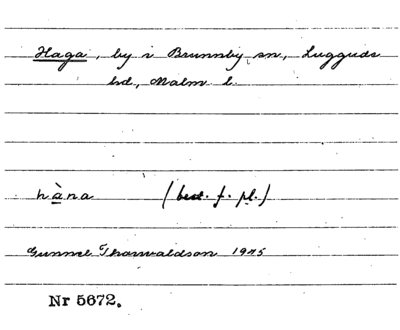 Haga, by i Brunnby sn, Luggude
hd, Malm l.
hàna (best. f. pl.)
Gunnel Thorwaldson 1945
Nr 5672.